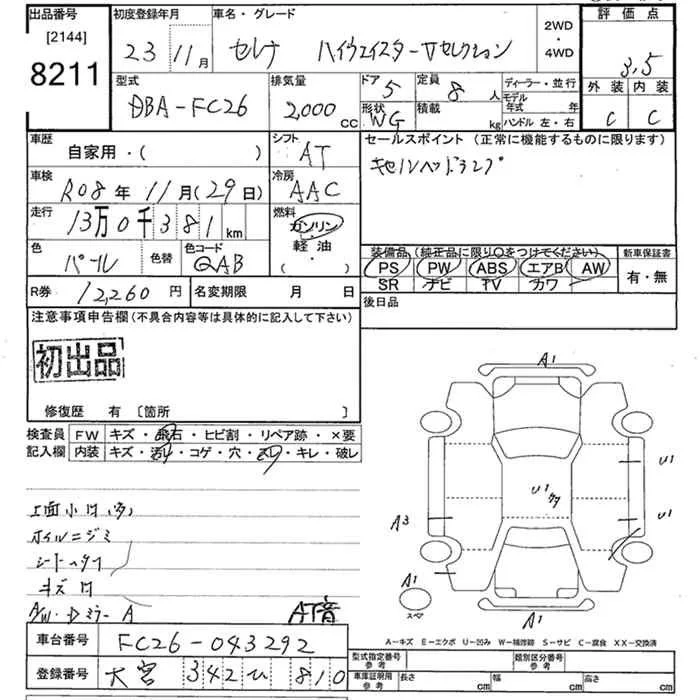 出品番号 初度登録年月 車名・グレード 2WD・4WD 評価点
[2144]
8211
23年11月 セレナ ハイウェイスターVセレクション 3.5
型式 排気量 ドア 定員 ディーラー・並行 外装 内装
DBA-FC26 2,000cc 5 8人 モデル年式 年 C C
形状 WG 積載 kg ハンドル 左・右
車歴 自家用・( ) シフト AT セールスポイント(正常に機能するものに限ります)
車検 R08年11月(29日) 冷房 AAC キセノンヘッドランプ
走行 13万0千381km 燃料 ガソリン・軽油・( )
色 パール 色替 色コード QAB 装備品(純正品に限り○をつけてください) 新車保証書
PS PW ABS エアB AW 有・無
SR ナビ TV カワ
R券 12,260円 名変期限 月 日 後日品
注意事項申告欄(不具合内容等は具体的に記入して下さい)
初出品
修復歴 有 〔箇所 〕
検査員記入欄 FW キズ・飛石・ヒビ割・リペア跡・×要
内装 キズ・汚れ・コゲ・穴・スレ・キレ・破レ
ホイルニジミ
キズ
AW・Dミラー A
AT音
A1
U1
U1
U1
A3
A1
スペア
A1
A-キズ E-エクボ U-凹み W-補修跡 S-サビ C-腐食 XX-交換済
車台番号 FC26-043292
登録番号 大宮 342 ひ 810
型式指定番号 参考 類別区分番号 参考
車庫証明用 参考 長さ cm 幅 cm 高さ cm